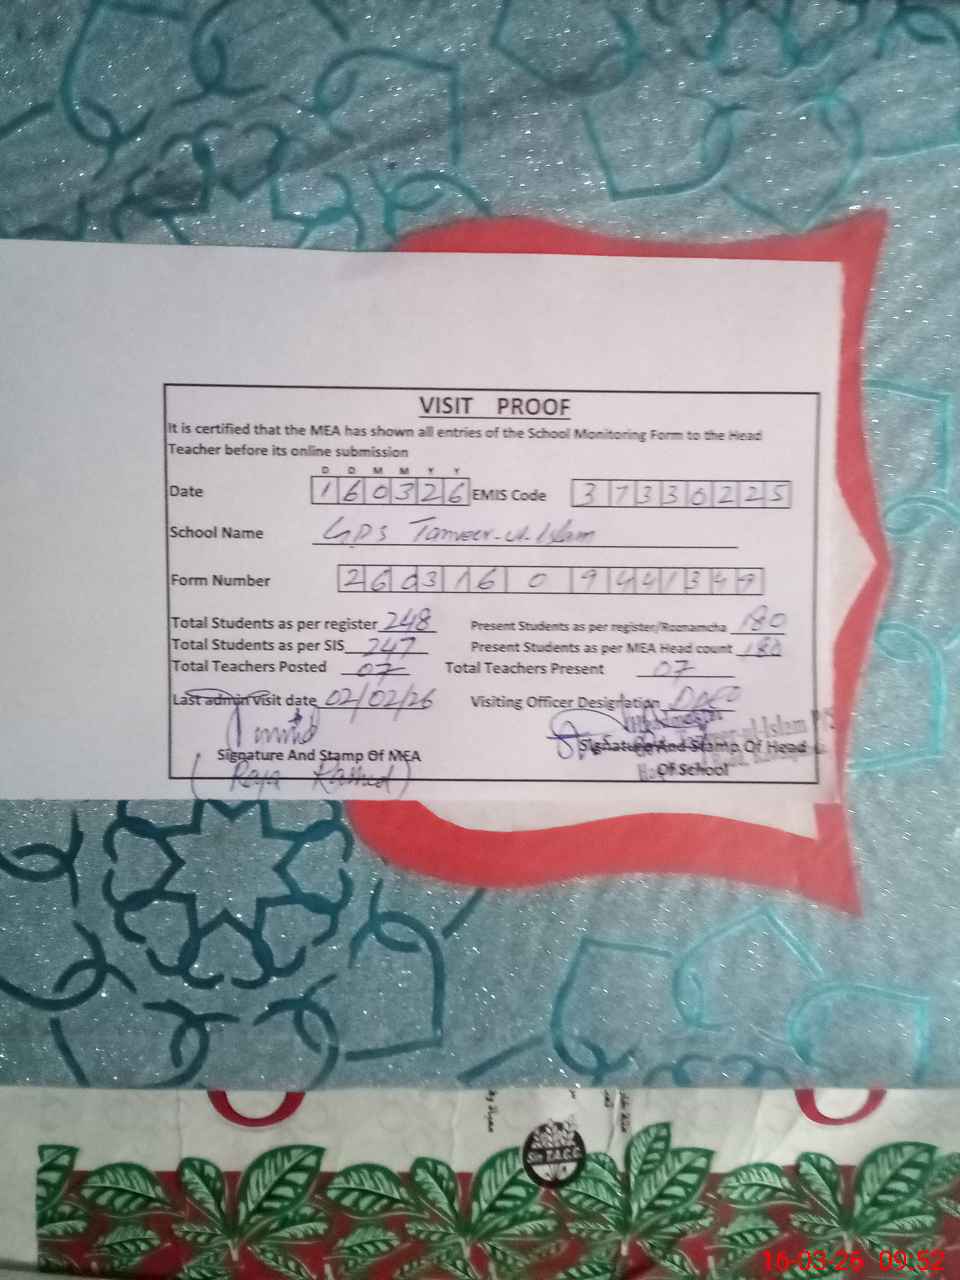 VISIT PROOF
It is certified that the MEA has shown all entries of the School Monitoring Form to the Head
Teacher before its online submission
D D M M Y Y
Date 160326 EMIS Code 37330225
School Name GPS Tanveer-ul-Islam
Form Number 260316 0 9441349
Total Students as per register 248 Present Students as per register/Roznamcha 180
Total Students as per SIS 247 Present Students as per MEA Head count 180
Total Teachers Posted 07 Total Teachers Present 07
Last admin visit date 02/02/26 Visiting Officer Designation
Signature And Stamp Of MEA Signature And Stamp Of Head
Of School
Sin T.A.C.C.
16-03-26 09:52